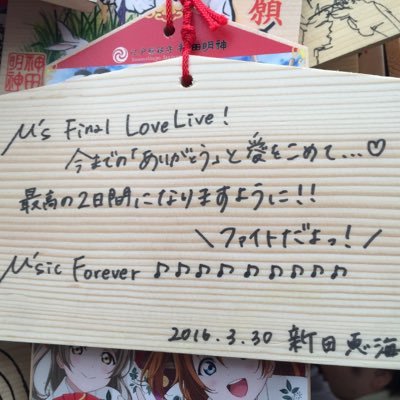 願
江戸総鎮守 神田明神
神田明神
μ's Final LoveLive!
今までの「ありがとう」と愛をこめて…♡
最高の2日間になりますように!!
＼ファイトだよっ!／
μ'sic Forever ♪♪♪♪♪♪♪♪♪
2016.3.30 新田恵海